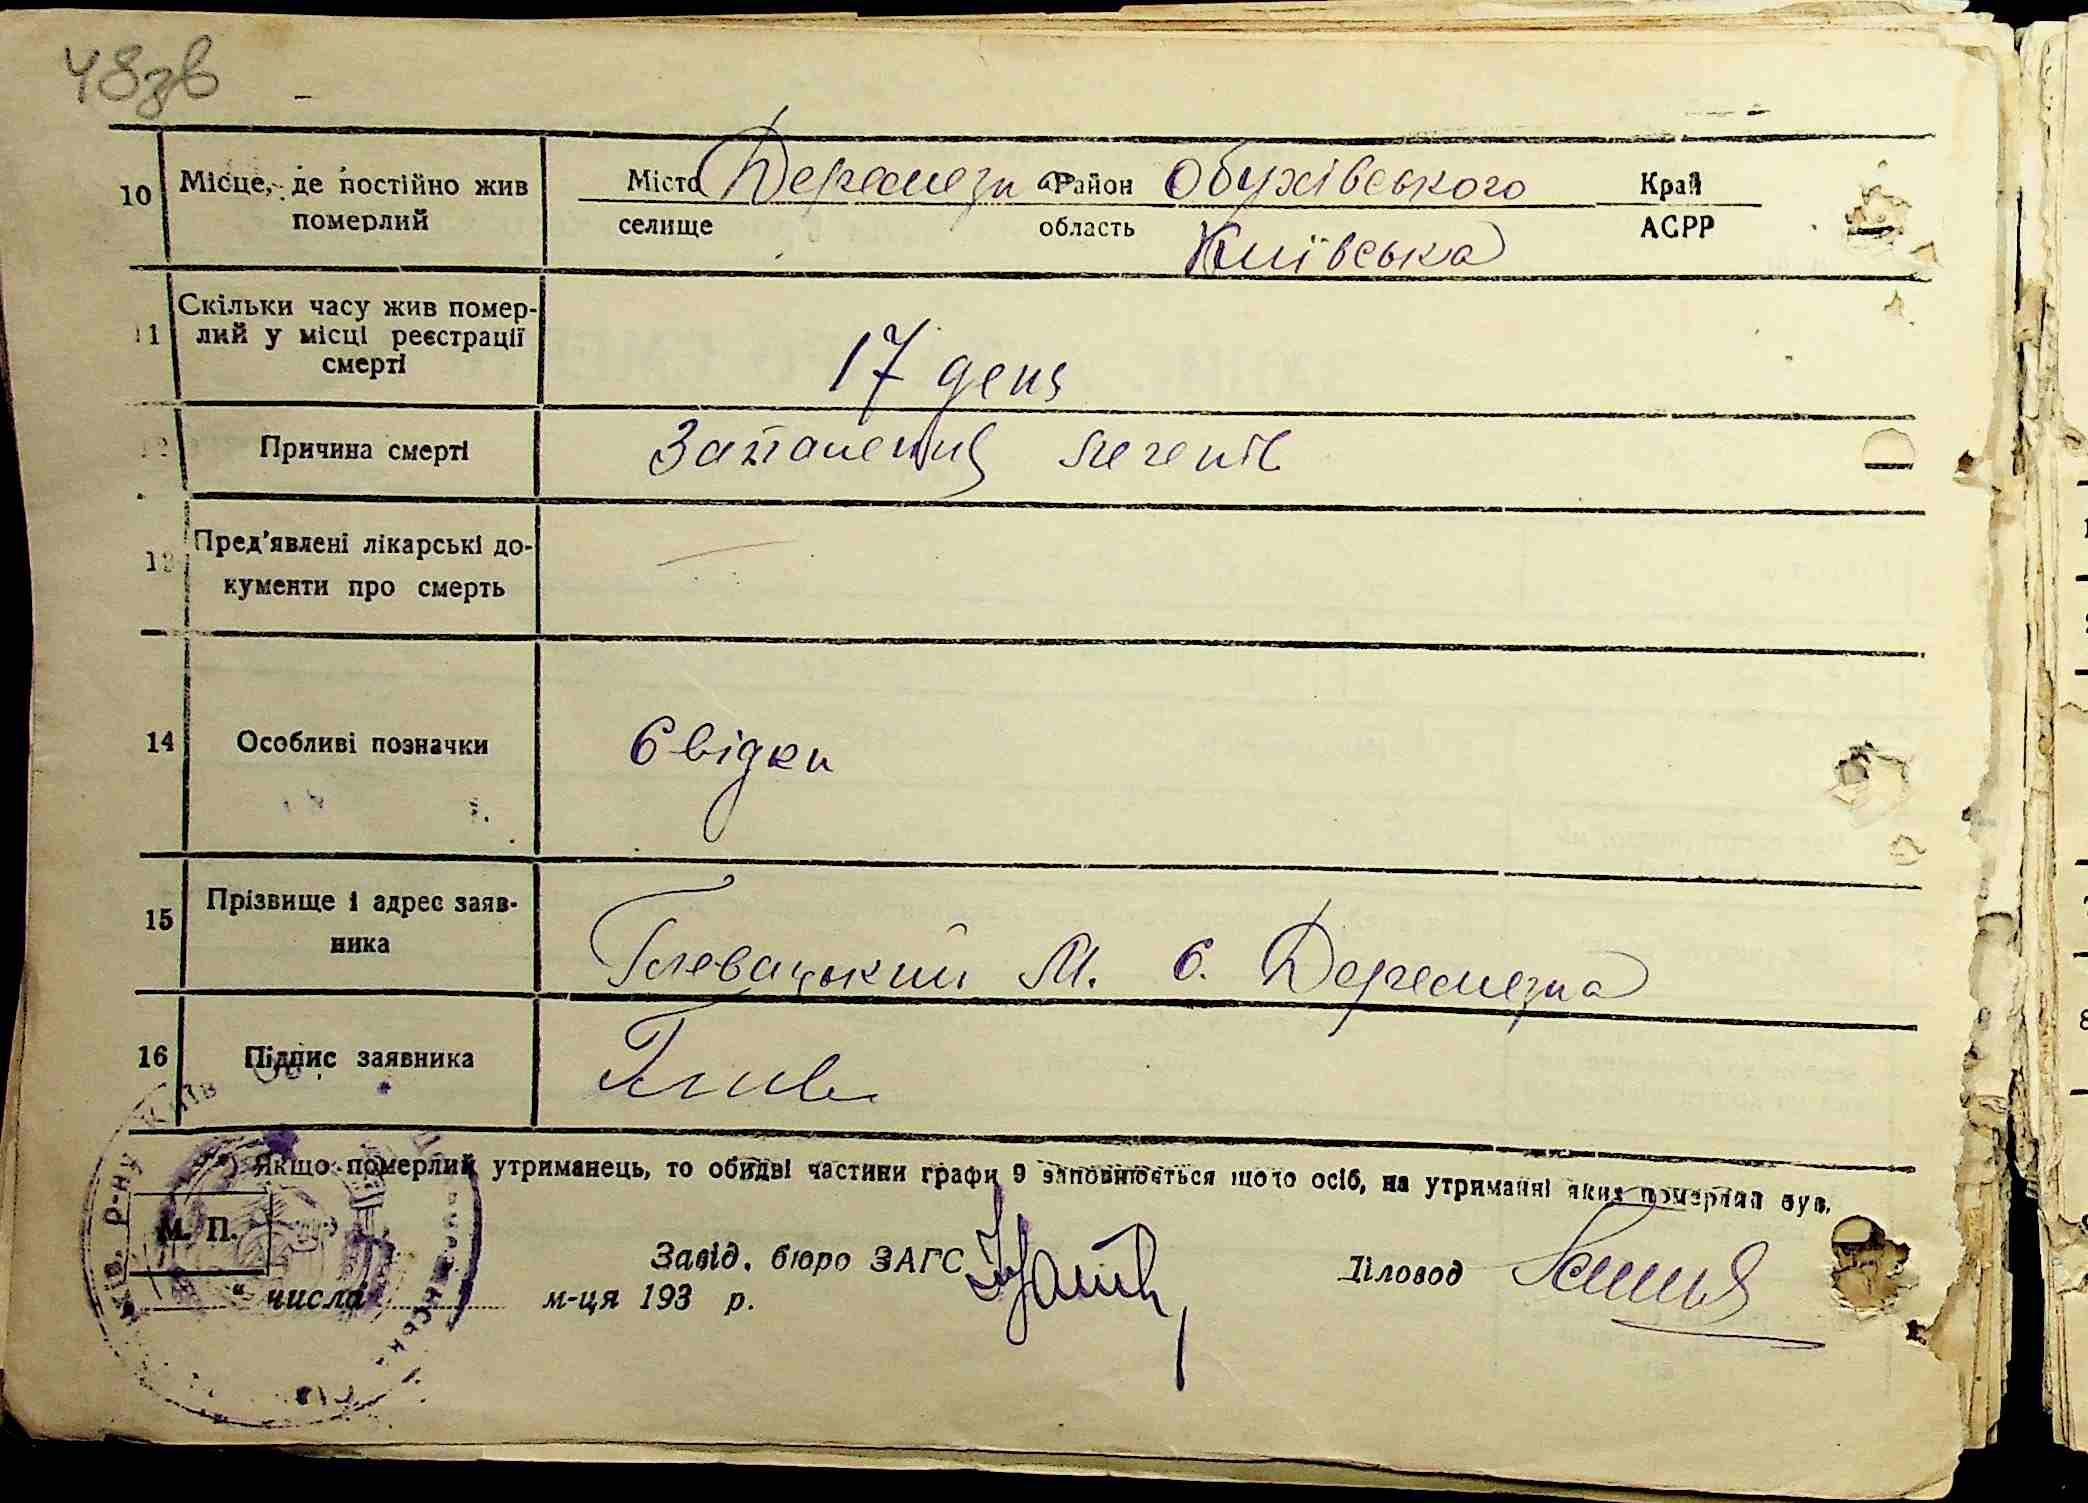 48зв
10 Місце, де постійно жив Місто Деремезна Район Обухівського Край
померлий селище область Київська АСРР
11 Скільки часу жив помер-
лий у місці реєстрації
смерті 17 день
12 Причина смерті Запалення легенів
13 Пред'явлені лікарські до-
кументи про смерть
14 Особливі позначки Свідки
15 Прізвище і адрес заяв-
ника Глевацький М. С. Деремезна
16 Підпис заявника
*) Якщо померлий утриманець, то обидві частини графи 9 заповнюється щодо осіб, на утриманні яких померлий був.
М. П.
Завід. бюро ЗАГС Діловод
" числа м-ця 193 р.